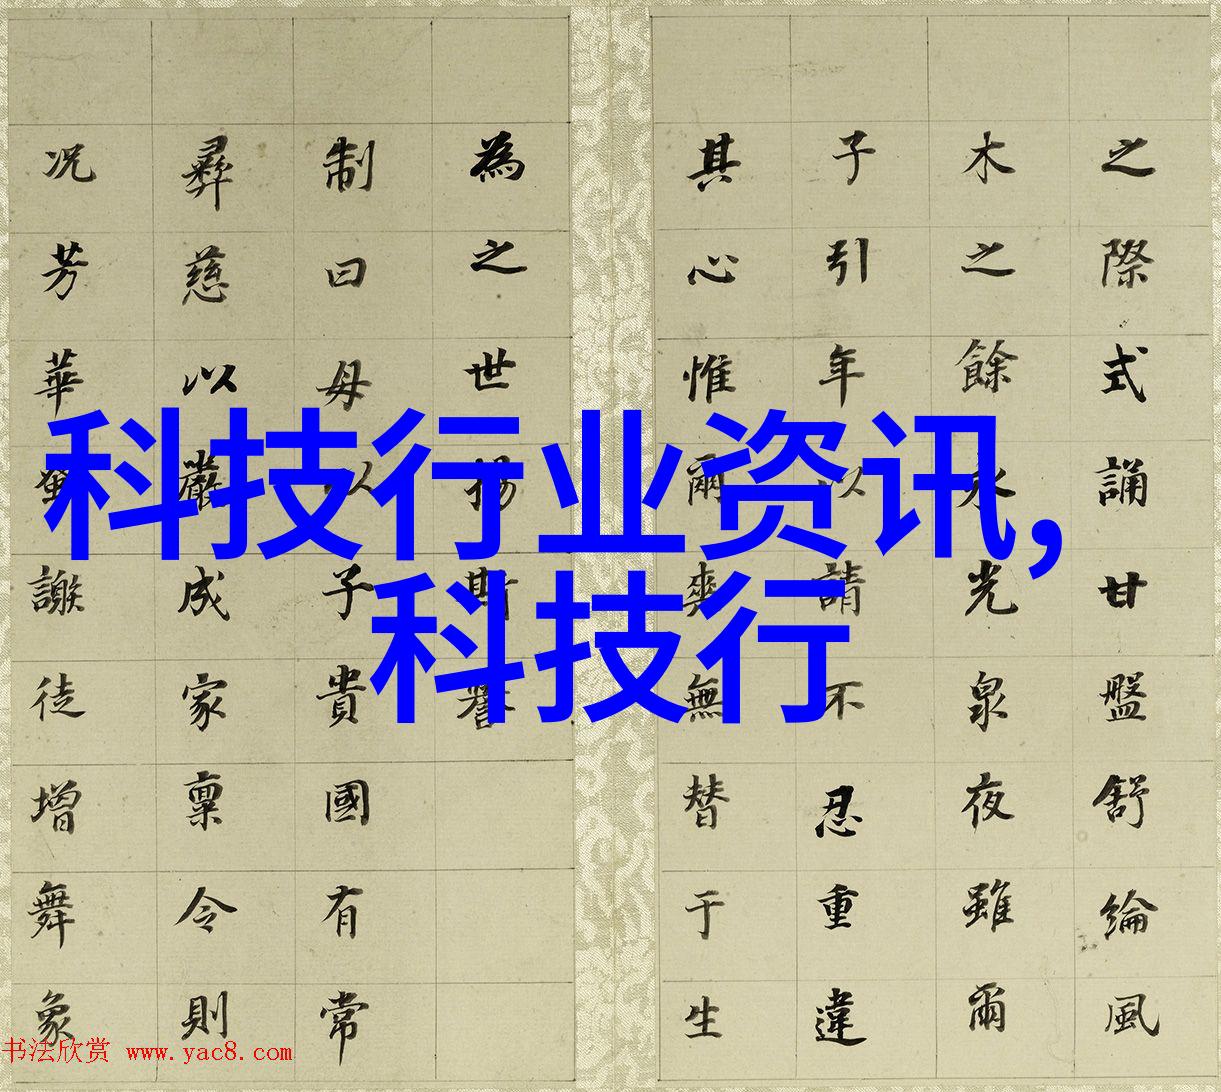 科技行业资讯,
科技行
之際式誦甘盤舒綸風
木之餘永光泉夜雖爾
子引年以請不忍重違
其心惟爾爽無替于生
為之世揚斯譽
制曰母以子貴國有常
彞慈以嚴成家稟令則
况芳華蚤謝徒增舞象
书法欣赏 www.yac8.com